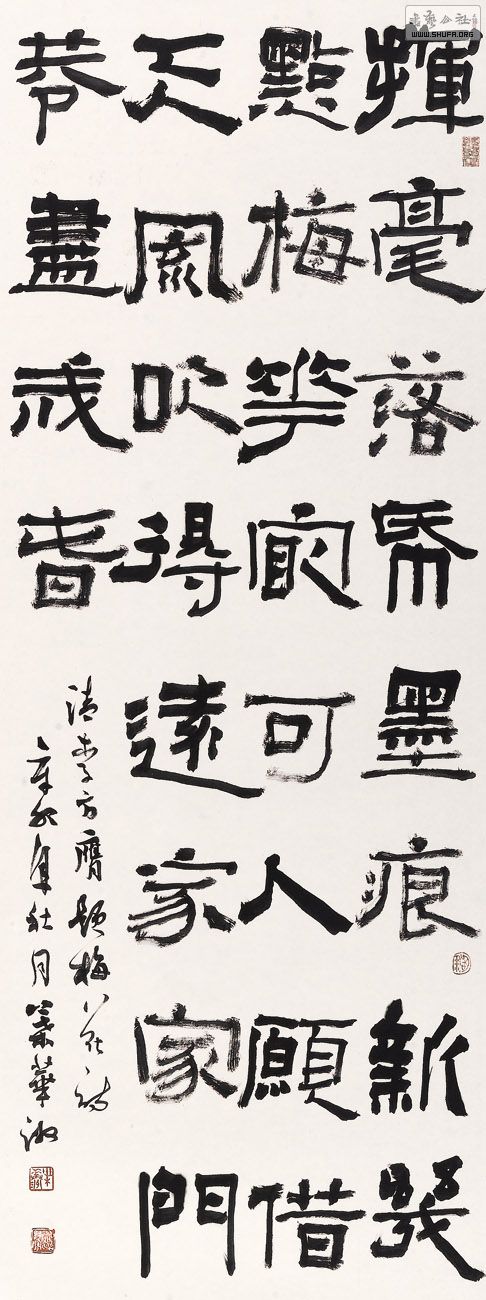 書藝公社
WWW.SHUFA.ORG
揮毫落帋墨痕新幾
點梅華最可人願借
天風吹得遠家家門
巷盡成春
清李方膺題梅花詩
辛卯年秋月